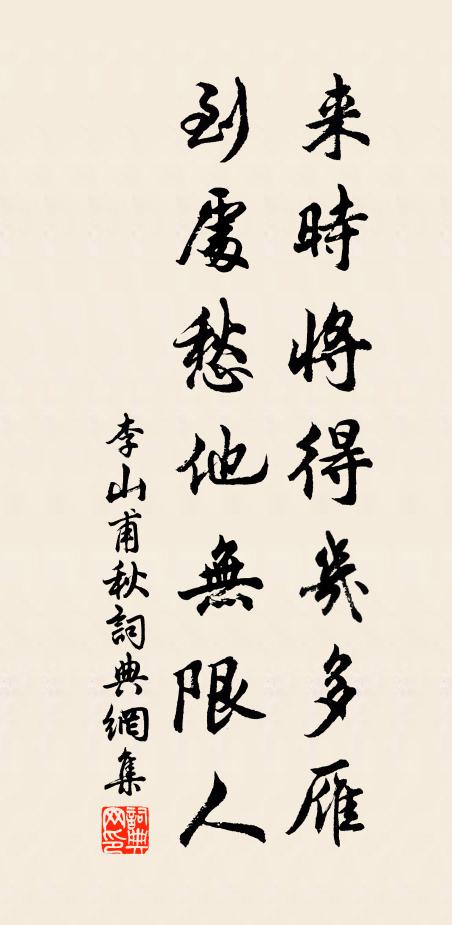 来時將得幾多雁
到處愁他無限人
李山甫秋詞典網集
詞典網印